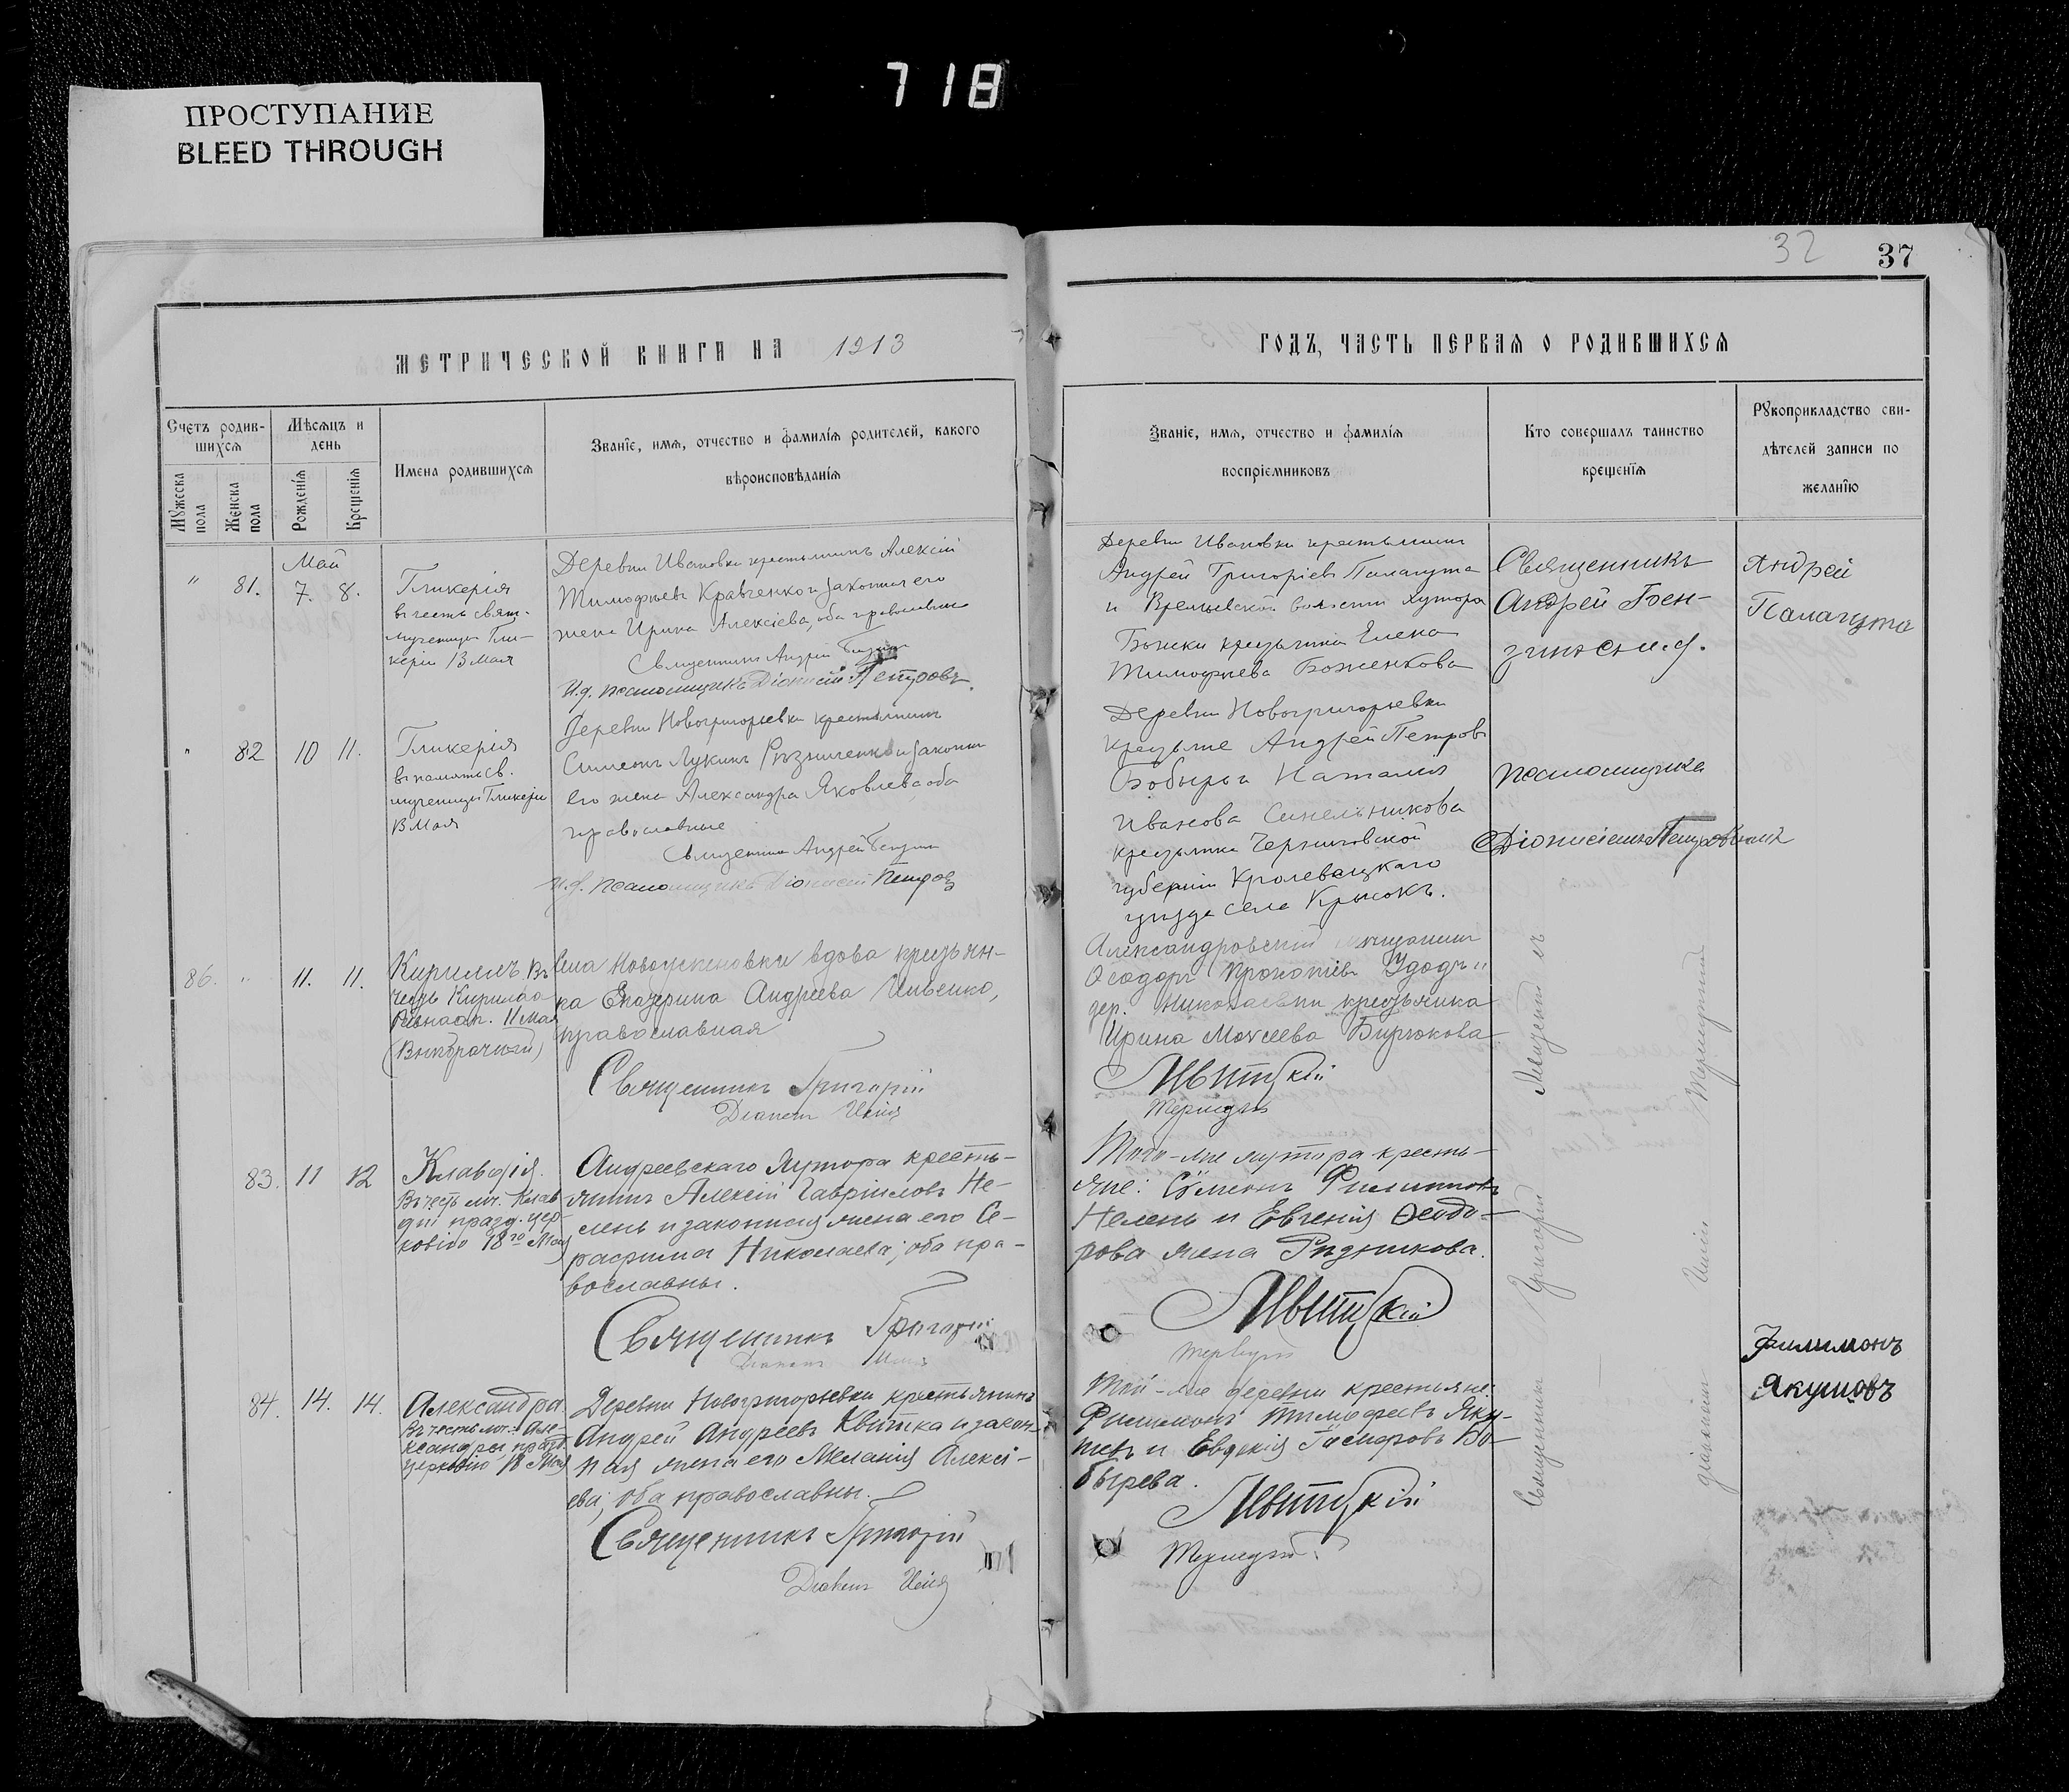 718
ПРОСТУПАНИЕ
BLEED THROUGH
32
37
МЕТРИЧЕСКОЙ КНИГИ НА 1913
ГОДЪ, ЧАСТЬ ПЕРВАЯ О РОДИВШИХСЯ
Счетъ родив-
шихся
Мужеска пола
Женска пола
Мѣсяцъ и
день
Рожденія
Крещенія
Имена родившихся
Званіе, имя, отчество и фамилія родителей, какого
вѣроисповѣданія
Званіе, имя, отчество и фамилія
воспріемниковъ
Кто совершалъ таинство
крещенія
Рукоприкладство сви-
дѣтелей записи по
желанію
Май
" 81. 7. 8.
Гликерія
въ честь свят.
мученицы Гли-
керіи 13 Мая
Деревни Ивановки крестьянинъ Алексій
Тимофѣевъ Кравченко и законная его
жена Ирина Алексіева, оба православные
Священникъ Андрей
И.д. псаломщика Діонисій Петровъ.
Деревни Ивановки крестьянинъ
Андрей Григоріевъ Палагута
и волости хутора
крестьянка Елена
Тимофѣева Боженкова
Священникъ
Андрей
Андрей
Палагута
" 82 10 11.
Гликерія
въ память св.
мученицы Гликеріи
13 Мая
Деревни Новогригорьевки крестьянинъ
Симеонъ Лукинъ Рѣзниченко и законная
его жена Александра Яковлева, оба
православные
Священникъ Андрей
И.д. псаломщика Діонисій Петровъ
Деревни Новогригорьевки
крестьяне Андрей Петровъ
Бобырь и Наталія
Иванова Синельникова
крестьянка Черниговской
губерніи Кролевецкаго
уѣзда села
псаломщика
Діонисіемъ Петровымъ
86. " 11. 11.
Кириллъ Въ
честь Кирилла
Равноап. 11 Мая
(Внѣбрачный)
Села Новоуспеновки вдова крестьян-
ка Екатерина Андреева Ильенко,
православная
Священникъ Григорій
Діаконъ Илія
Александровскій мѣщанинъ
Ѳеодоръ Прокопіевъ Удодъ и
дер. Николаевки крестьянка
Ирина Моѵсеева Бирюкова
Лѣвитскій
83. 11 12
Клавдія.
Въ честь мч. Клав
діи празд. цер-
ковію 18го Мая
Андреевскаго хутора кресть-
янинъ Алексій Гавріиловъ Не-
лень и законная жена его Се-
рафима Николаева; оба пра-
вославны.
Священникъ Григорій
Діаконъ Илія
Того-же хутора кресть-
яне: Сѵмеонъ Филипповъ
Нелень и Евгенія Ѳеодо-
рова жена
Лѣвитскій
84. 14. 14.
Александра.
Въ честь мч. Але-
ксандры, празд.
церковію 18 Мая
Деревни Новогригорьевки крестьянинъ
Андрей Андреевъ Квитка и закон-
ная жена его Меланія Алексі-
ева; оба православны.
Священникъ Григорій
Діаконъ Илія
Той-же деревни крестьяне:
Филимонъ Тимофеевъ Яку-
шевъ и Евдокія Бо-
бырева.
Лѣвитскій
Священникъ Григорій
діаконъ Илія
Филимонъ
Якушовъ